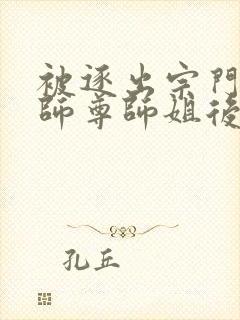 被逐出宗門
師尊師姐後
孔丘